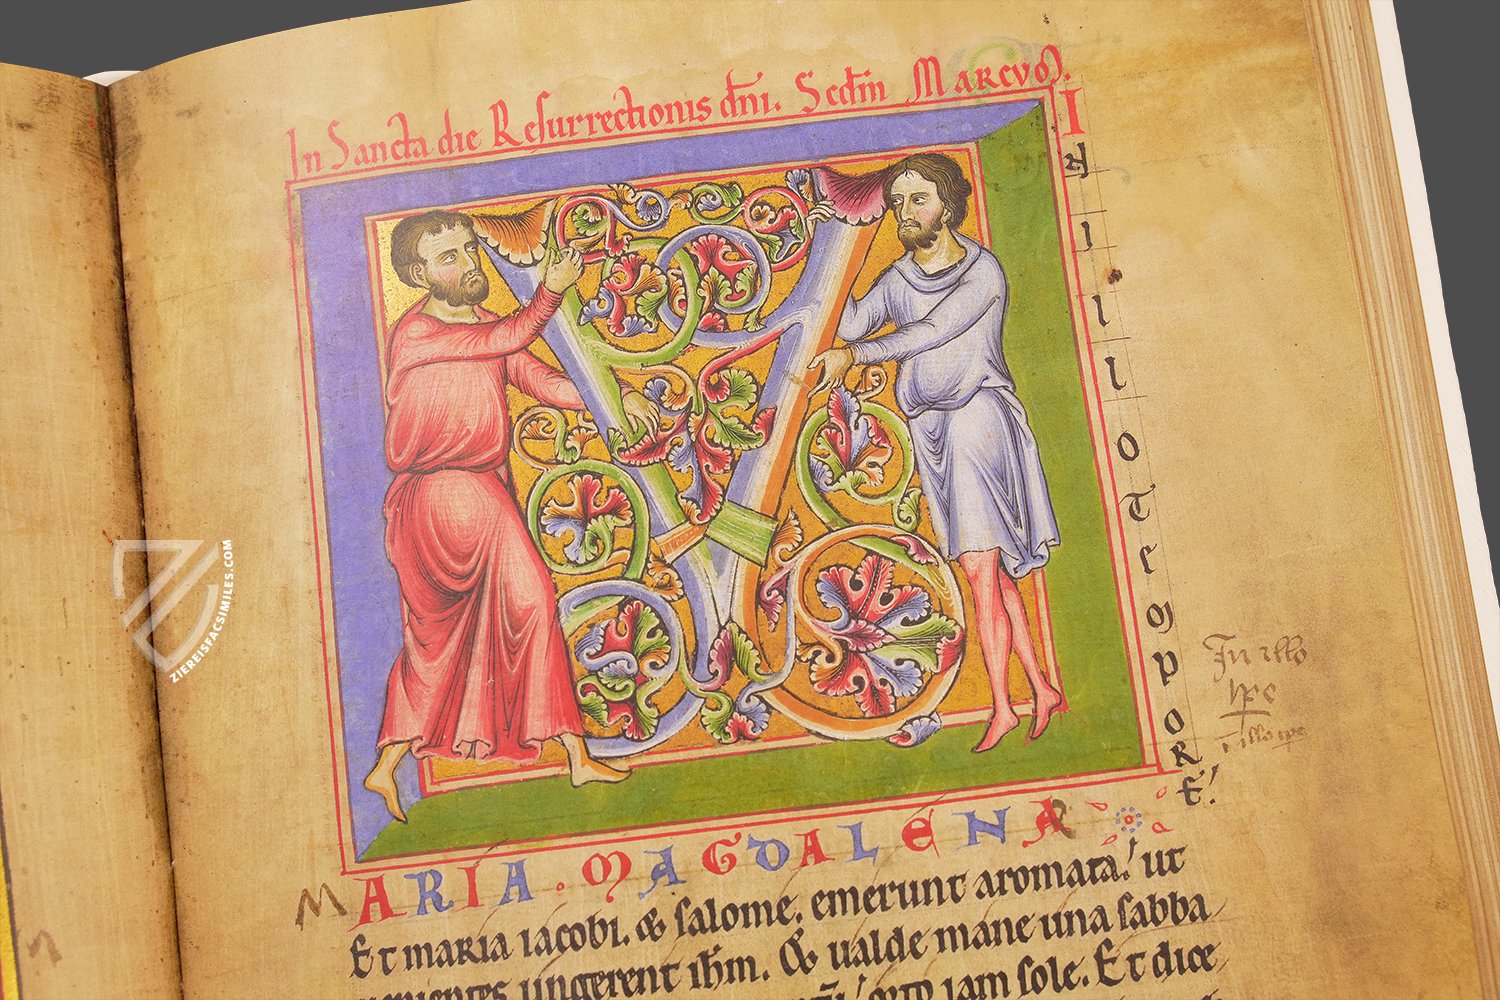 In Sancta die Resurrectionis dñi. Scdm MARCVM.
IN ILLO TEMPORE!
MARIA. MAGDALENA
Et maria iacobi. & salome. emerunt aromata! ut
ungerent ihm. & ualde mane una sabba
iam sole. Et dice
In illo
tpe
ZIEREISFACSIMILES.COM